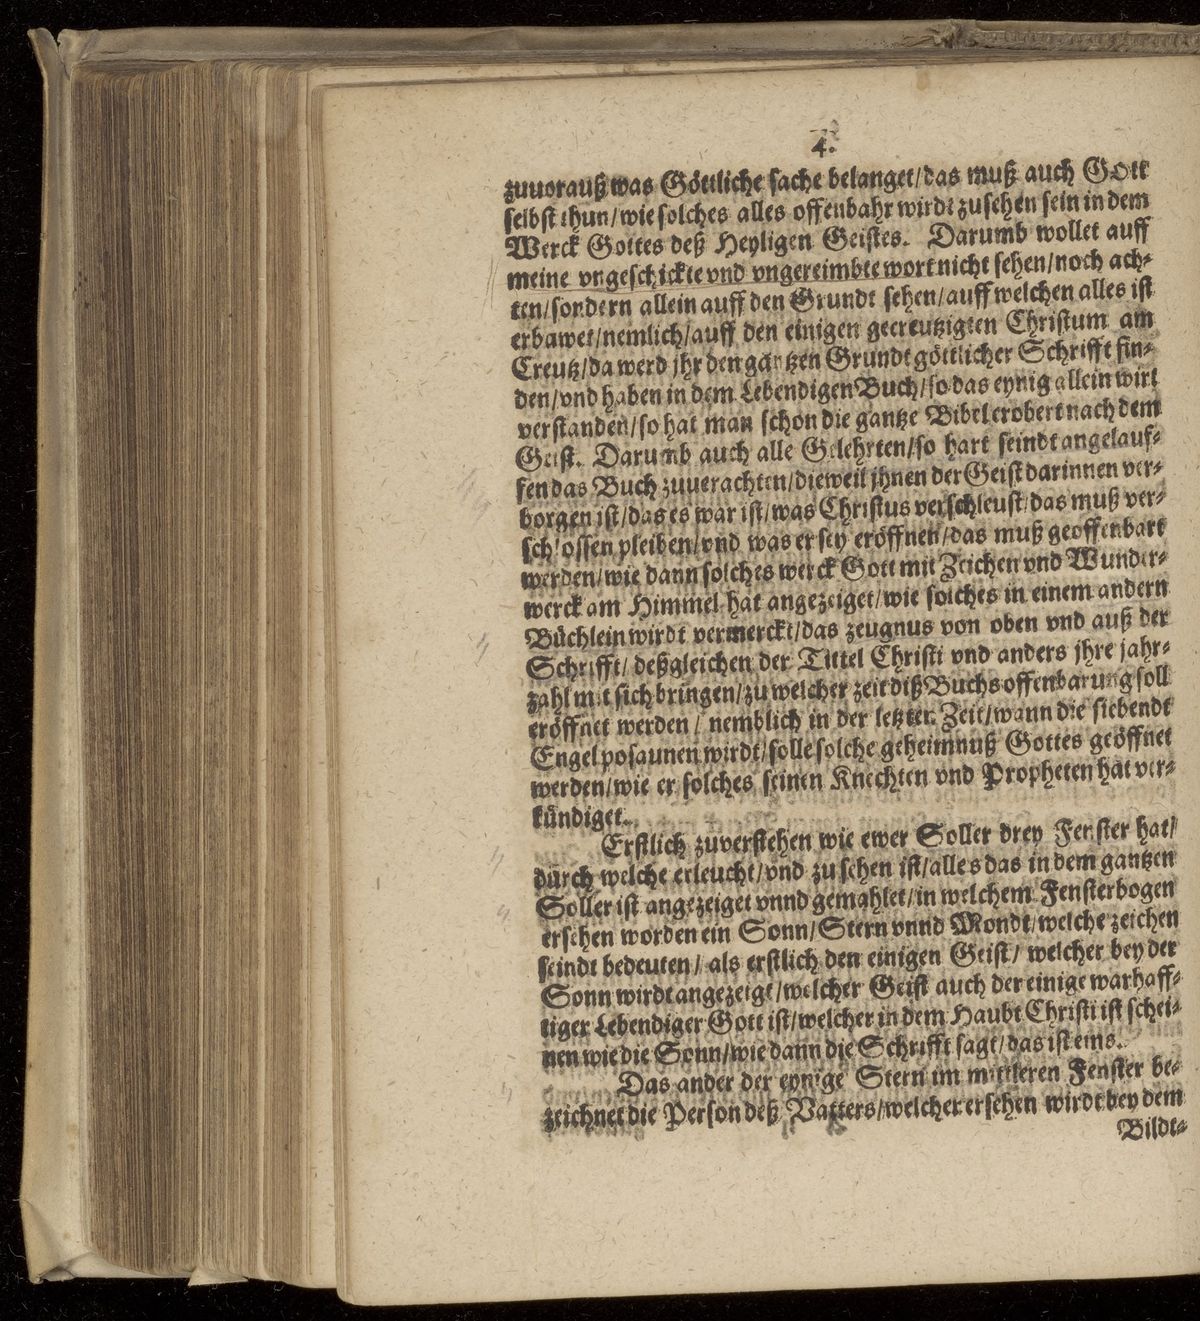 4.
zuuorauß was Göttliche sache belanget/das muß auch GOtt
selbst thun/wie solches alles offenbahr wirdt zusehen sein in dem
Werck Gottes deß Heyligen Geistes. Darumb wollet auff
meine vngeschickte vnd vngereimbte wort nicht sehen/noch ach-
ten/sondern allein auff den Grundt sehen/auff welchen alles ist
erbawet/nemlich/auff den einigen gecreutzigten Christum am
Creutz/da werd jhr den gantzen Grundt göttlicher Schrifft fin-
den/vnd haben in dem Lebendigen Buch/so das eynig allein wirt
verstanden/so hat man schon die gantze Bibel erobert nach dem
Geist. Darumb auch alle Gelehrten/so hart seindt angelauf-
fen das Buch zuuerachten/dieweil jhnen der Geist darinnen ver-
borgen ist/das es war ist/was Christus verschleust/das muß ver-
schlossen pleiben/vnd was er sey eröffnen/das muß geoffenbart
werden/wie dann solches werck Gott mit Zeichen vnd Wunder-
werck am Himmel hat angezeiget/wie solches in einem andern
Büchlein wirdt vermerckt/das zeugnus von oben vnd auß der
Schrifft/ deßgleichen der Tittel Christi vnd anders jhre jahr-
zahl mit sich bringen/zu welcher zeit diß Buchs offenbarung soll
eröffnet werden/ nemblich in der letzten Zeit/wann die siebendt
Engel posaunen wirdt/solle solche geheimnuß Gottes geöffnet
werden/wie er solches seinen Knechten vnd Propheten hat ver-
kündiget.
Erstlich zuverstehen wie ewer Soller drey Fenster hat/
durch welche erleucht/vnd zu sehen ist/alles das in dem gantzen
Soller ist angezeiget vnnd gemahlet/in welchem Fensterbogen
ersehen worden ein Sonn/Stern vnnd Mondt/welche zeichen
seindt bedeuten/ als erstlich den einigen Geist/ welcher bey der
Sonn wirdt angezeigt/welcher Geist auch der einige warhaff-
tiger Lebendiger Gott ist/welcher in dem Haubt Christi ist schei-
nen wie die Sonn/wie dann die Schrifft sagt/das ist eins.
Das ander der eynige Stern im mittleren Fenster be-
zeichnet die Person deß Vatters/welcher ersehen wirdt bey dem
Bildt-